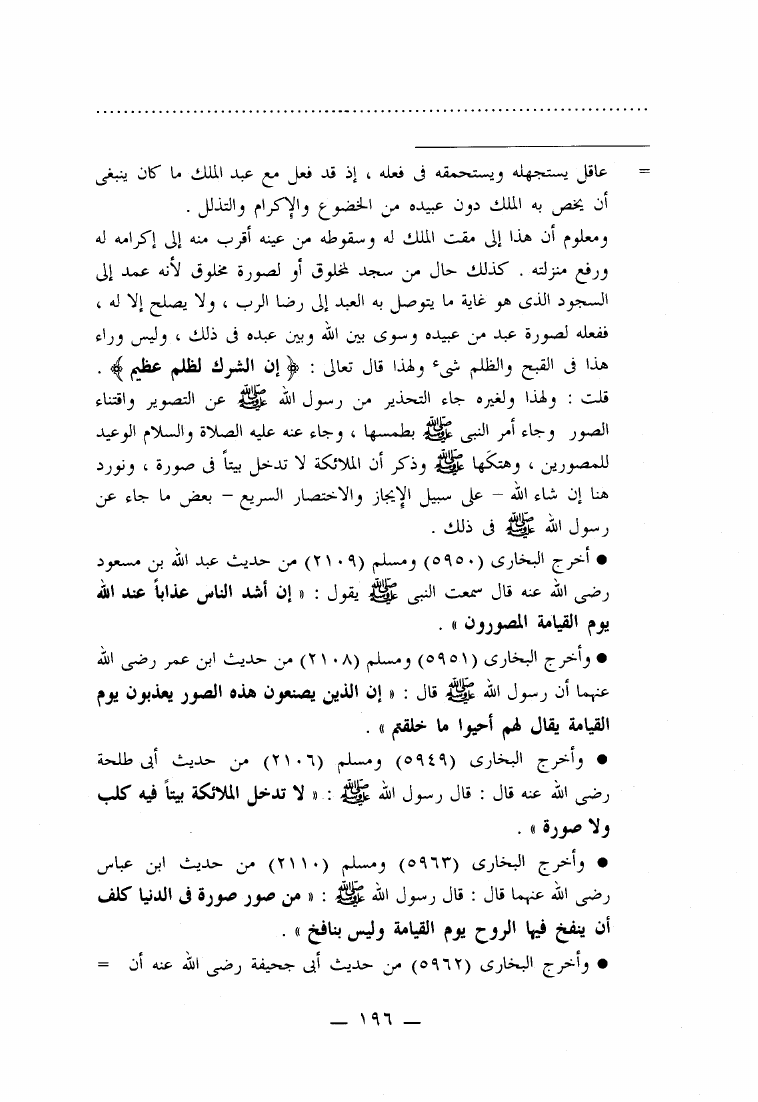 = عاقل يستجهله ويستحمقه فى فعله ، إذ قد فعل مع عبد الملك ما كان ينبغى
أن يخص به الملك دون عبيده من الخضوع والإكرام والتذلل .
ومعلوم أن هذا إلى مقت الملك له وسقوطه من عينه أقرب منه إلى إكرامه له
ورفع منزلته . كذلك حال من سجد لمخلوق أو لصورة مخلوق لأنه عمد إلى
السجود الذى هو غاية ما يتوصل به العبد إلى رضا الرب ، ولا يصلح إلا له ،
ففعله لصورة عبد من عبيده وسوى بين الله وبين عبده فى ذلك ، وليس وراء
هذا فى القبح والظلم شىء ولهذا قال تعالى : ﴿ إن الشرك لظلم عظيم ﴾ .
قلت : ولهذا ولغيره جاء التحذير من رسول الله ﷺ عن التصوير واقتناء
الصور وجاء أمر النبى ﷺ بطمسها ، وجاء عنه عليه الصلاة والسلام الوعيد
للمصورين ، وهتكَها ﷺ وذكر أن الملائكة لا تدخل بيتاً فى صورة ، ونورد
هنا إن شاء الله – على سبيل الإيجاز والاختصار السريع – بعض ما جاء عن
رسول الله ﷺ فى ذلك .
● أخرج البخارى (٥٩٥٠) ومسلم (٢١٠٩) من حديث عبد الله بن مسعود
رضى الله عنه قال سمعت النبى ﷺ يقول : « إن أشد الناس عذاباً عند الله
يوم القيامة المصورون » .
● وأخرج البخارى (٥٩٥١) ومسلم (٢١٠٨) من حديث ابن عمر رضى الله
عنهما أن رسول الله ﷺ قال : « إن الذين يصنعون هذه الصور يعذبون يوم
القيامة يقال لهم أحيوا ما خلقتم » .
● وأخرج البخارى (٥٩٤٩) ومسلم (٢١٠٦) من حديث أبى طلحة
رضى الله عنه قال : قال رسول الله ﷺ : « لا تدخل الملائكة بيتاً فيه كلب
ولا صورة » .
● وأخرج البخارى (٥٩٦٣) ومسلم (٢١١٠) من حديث ابن عباس
رضى الله عنهما قال : قال رسول الله ﷺ : « من صور صورة فى الدنيا كلف
أن ينفخ فيها الروح يوم القيامة وليس بنافخ » .
● وأخرج البخارى (٥٩٦٢) من حديث أبى جحيفة رضى الله عنه أن =
— ١٩٦ —